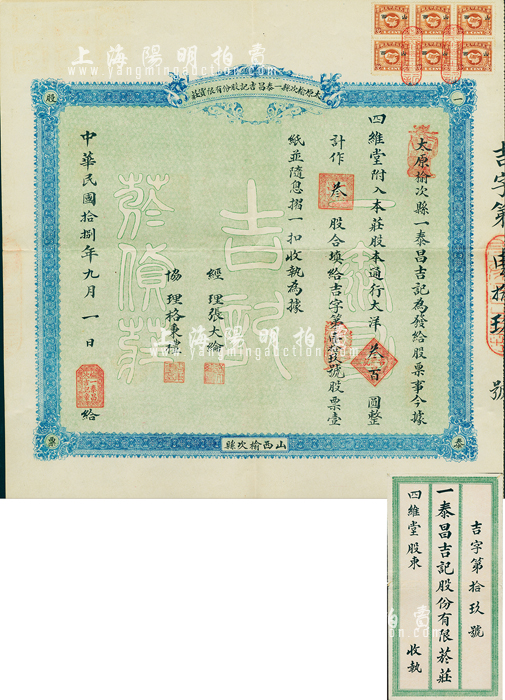 上海陽明拍賣
www.yangmingauction.com
太原榆次縣一泰昌吉記股份有限菸莊
股
一
太原榆次縣一泰昌吉記為發給股票事今據
四維堂附入本莊股本通行大洋叁百圓整
計作叁股合填給吉字第 拾玖號股票壹
紙並隨息摺一扣收執為據
經理張大綸
協理格秉禮
中華民國拾捌年九月一日
給
一泰昌
吉記
菸債莊
票
山西榆次縣
泰
吉字第 拾玖號
上海陽明拍賣
www.yangmingauction.com
吉字第拾玖號
一泰昌吉記股份有限菸莊
四維堂股東 收執